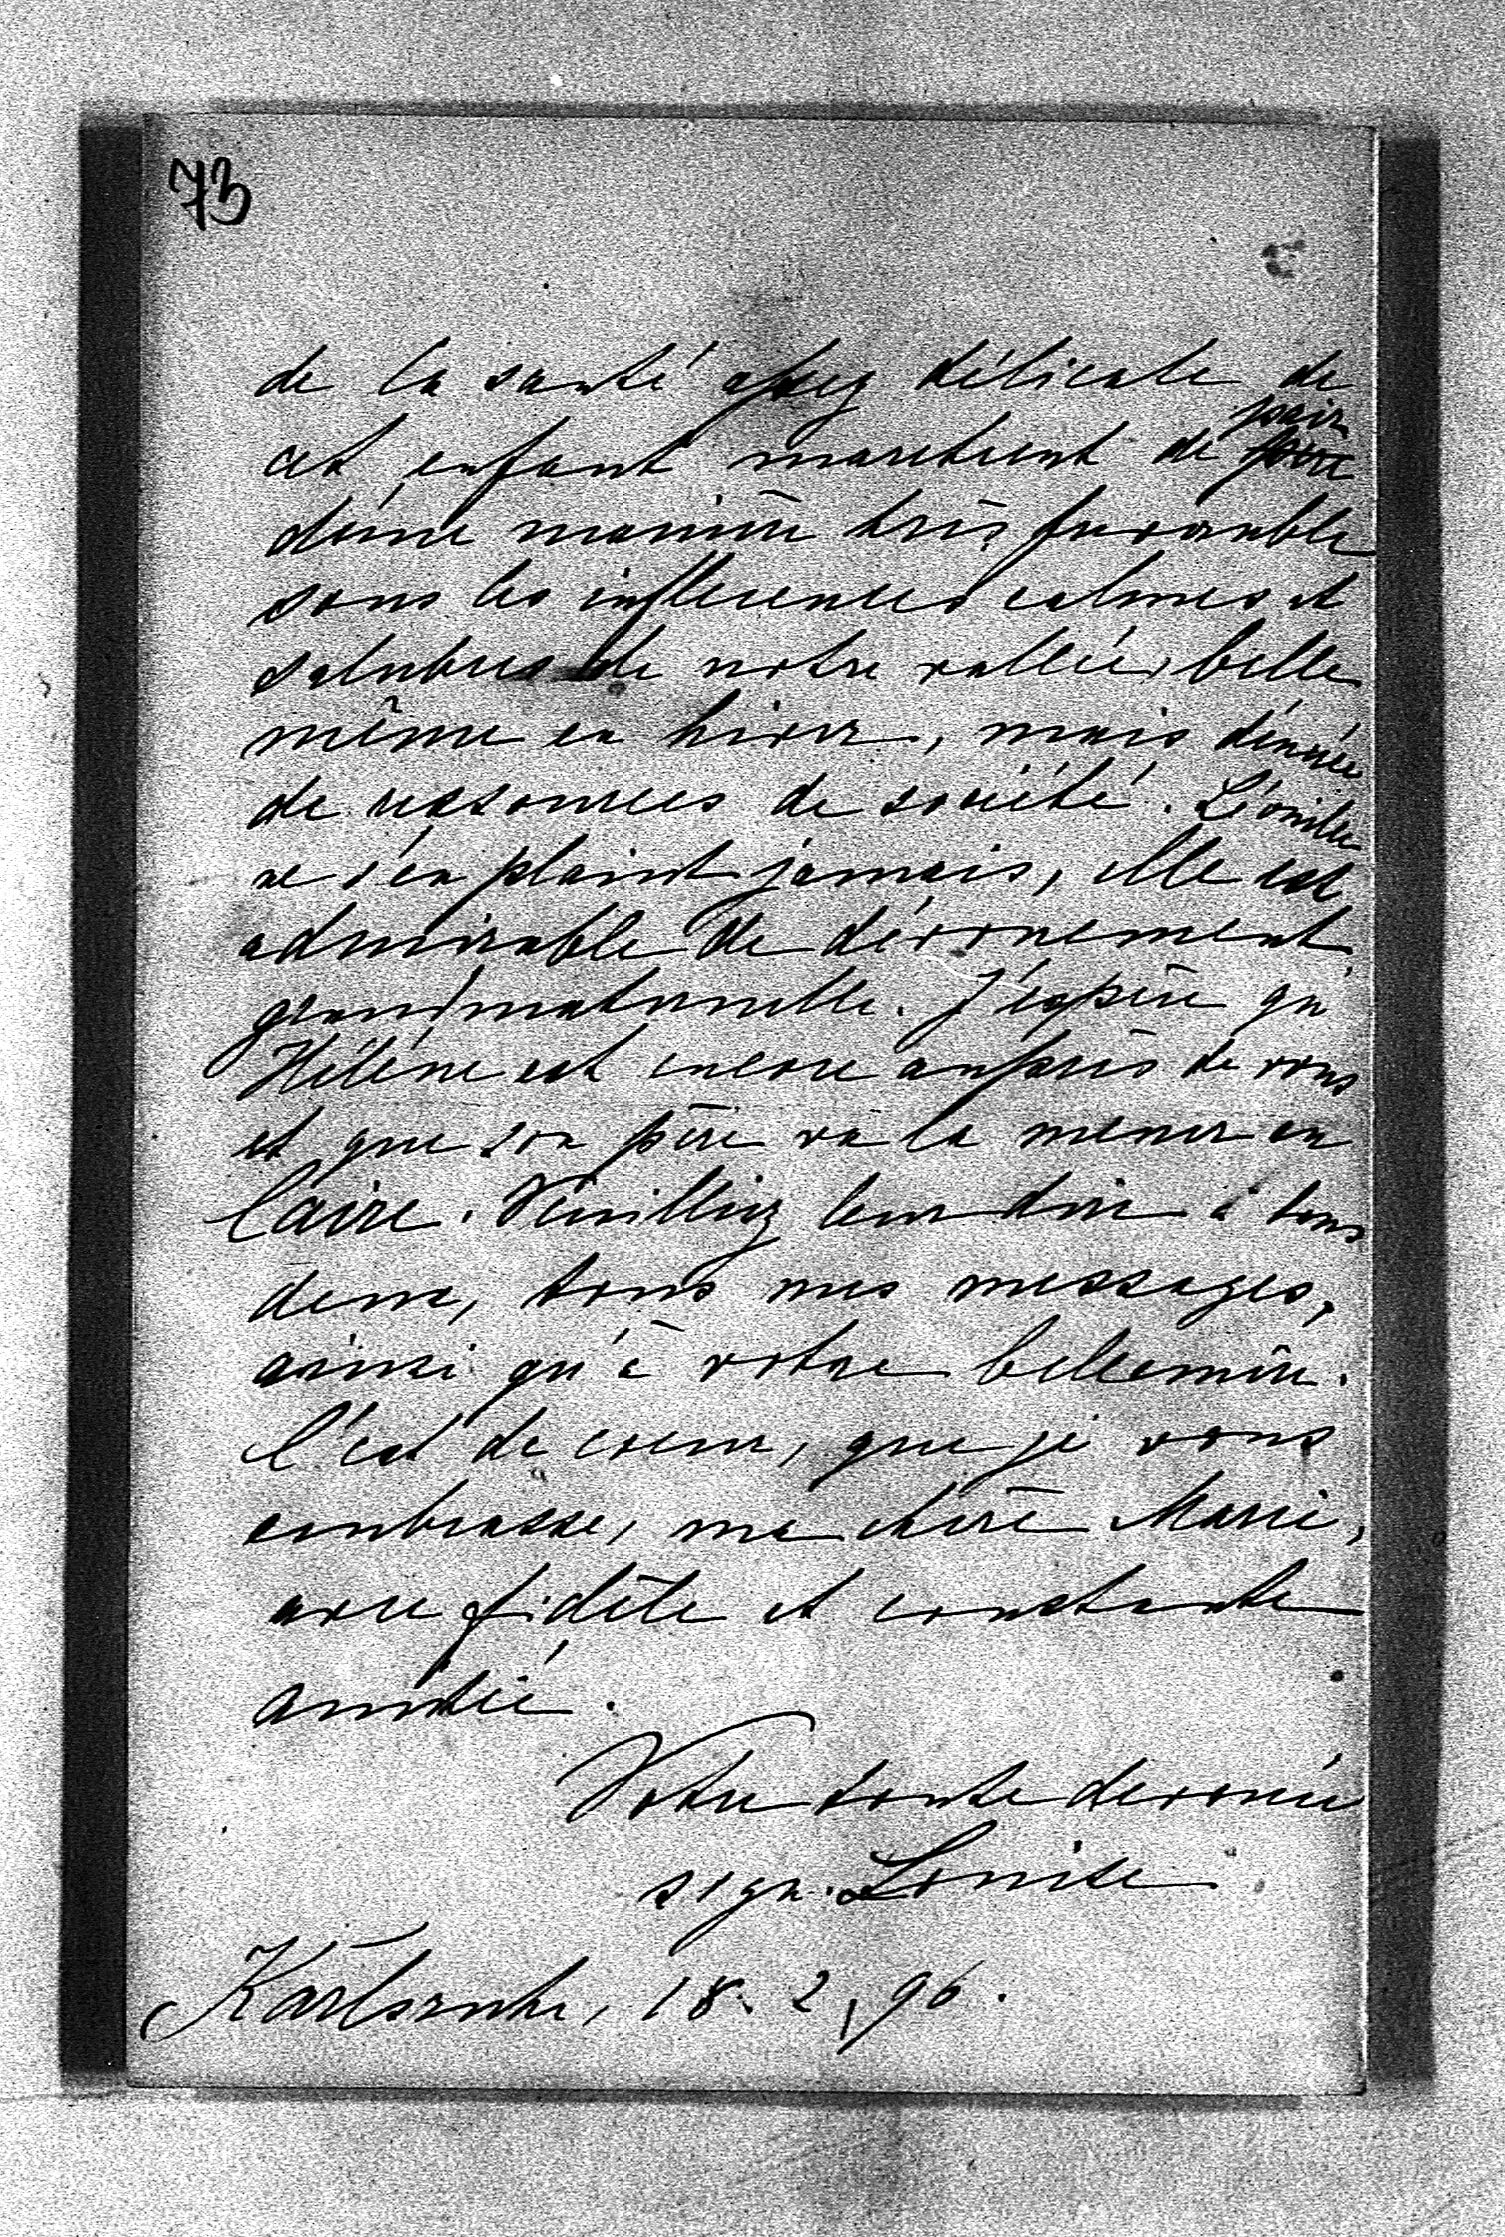 73
de la santé assez délicate de
cet enfant marchent de pair
d'une manière très favorable
sous les influences calmes et
salubres de notre vallée, belle
même en hiver, mais dénuée
de ressources de société. Léonille
ne s'en plaint jamais, elle est
admirable de dévouement
grandmaternelle. J'espère qu'
Hélène est encore auprès de vous
et que son père va la mener au
Caire. Veuillez leur dire à tous
deux, tous mes messages,
ainsi qu'à votre bellemère.
C'est de coeur, que je vous
embrasse, ma chère Marie,
avec fidèle et constante
amitié.
Votre toute devouée
sign. Louise
Karlsruhe, 18. 2, 96.